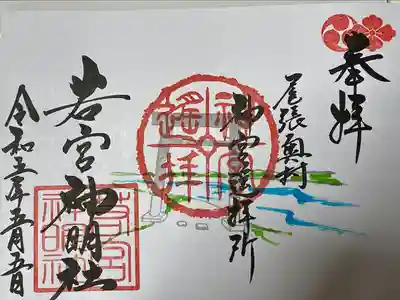 奉拝
尾張奥村
神宮遥拝所
神宮
遙拝
若宮神明社
令和五年五月五日